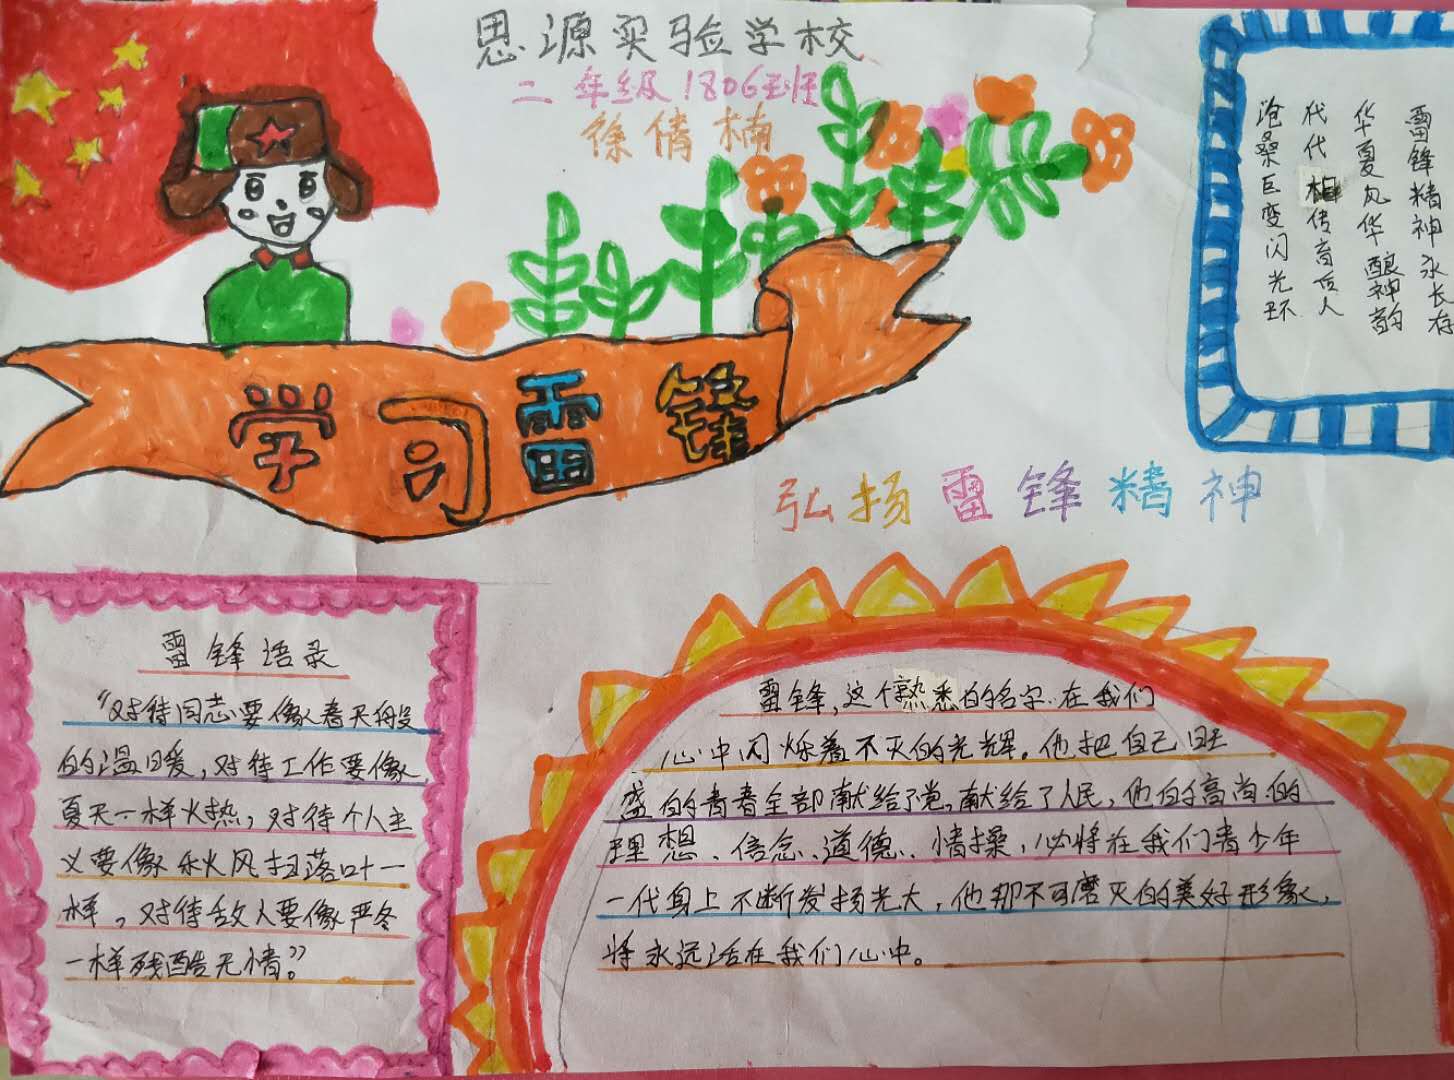 思源实验学校
二年级1806班
徐倩楠
雷锋精神永长存
华夏风华酿神韵
代代相传育后人
沧桑巨变闪光环
学习雷锋
弘扬雷锋精神
雷锋语录
“对待同志要像春天般
的温暖，对待工作要像
夏天一样火热，对待个人主
义要像秋风扫落叶一
样，对待敌人要像严冬
一样残酷无情。”
雷锋，这个熟悉的名字，在我们
心中闪烁着不灭的光辉。他把自己旺
盛的青春全部献给了党，献给了人民，他的高尚的
理想、信念、道德、情操，必将在我们青少年
一代身上不断发扬光大，他那不可磨灭的美好形象，
将永远活在我们心中。